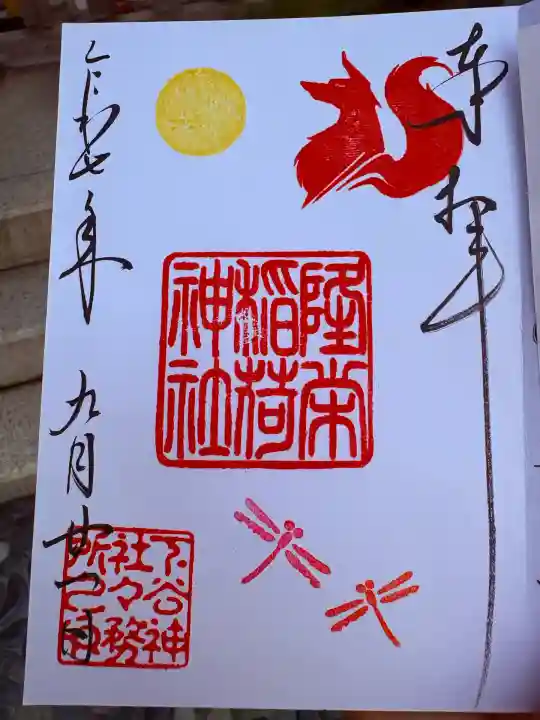 奉拝
隆栄
稲荷
神社
令和七年 九月廿一日
下谷神
社々務
所之印